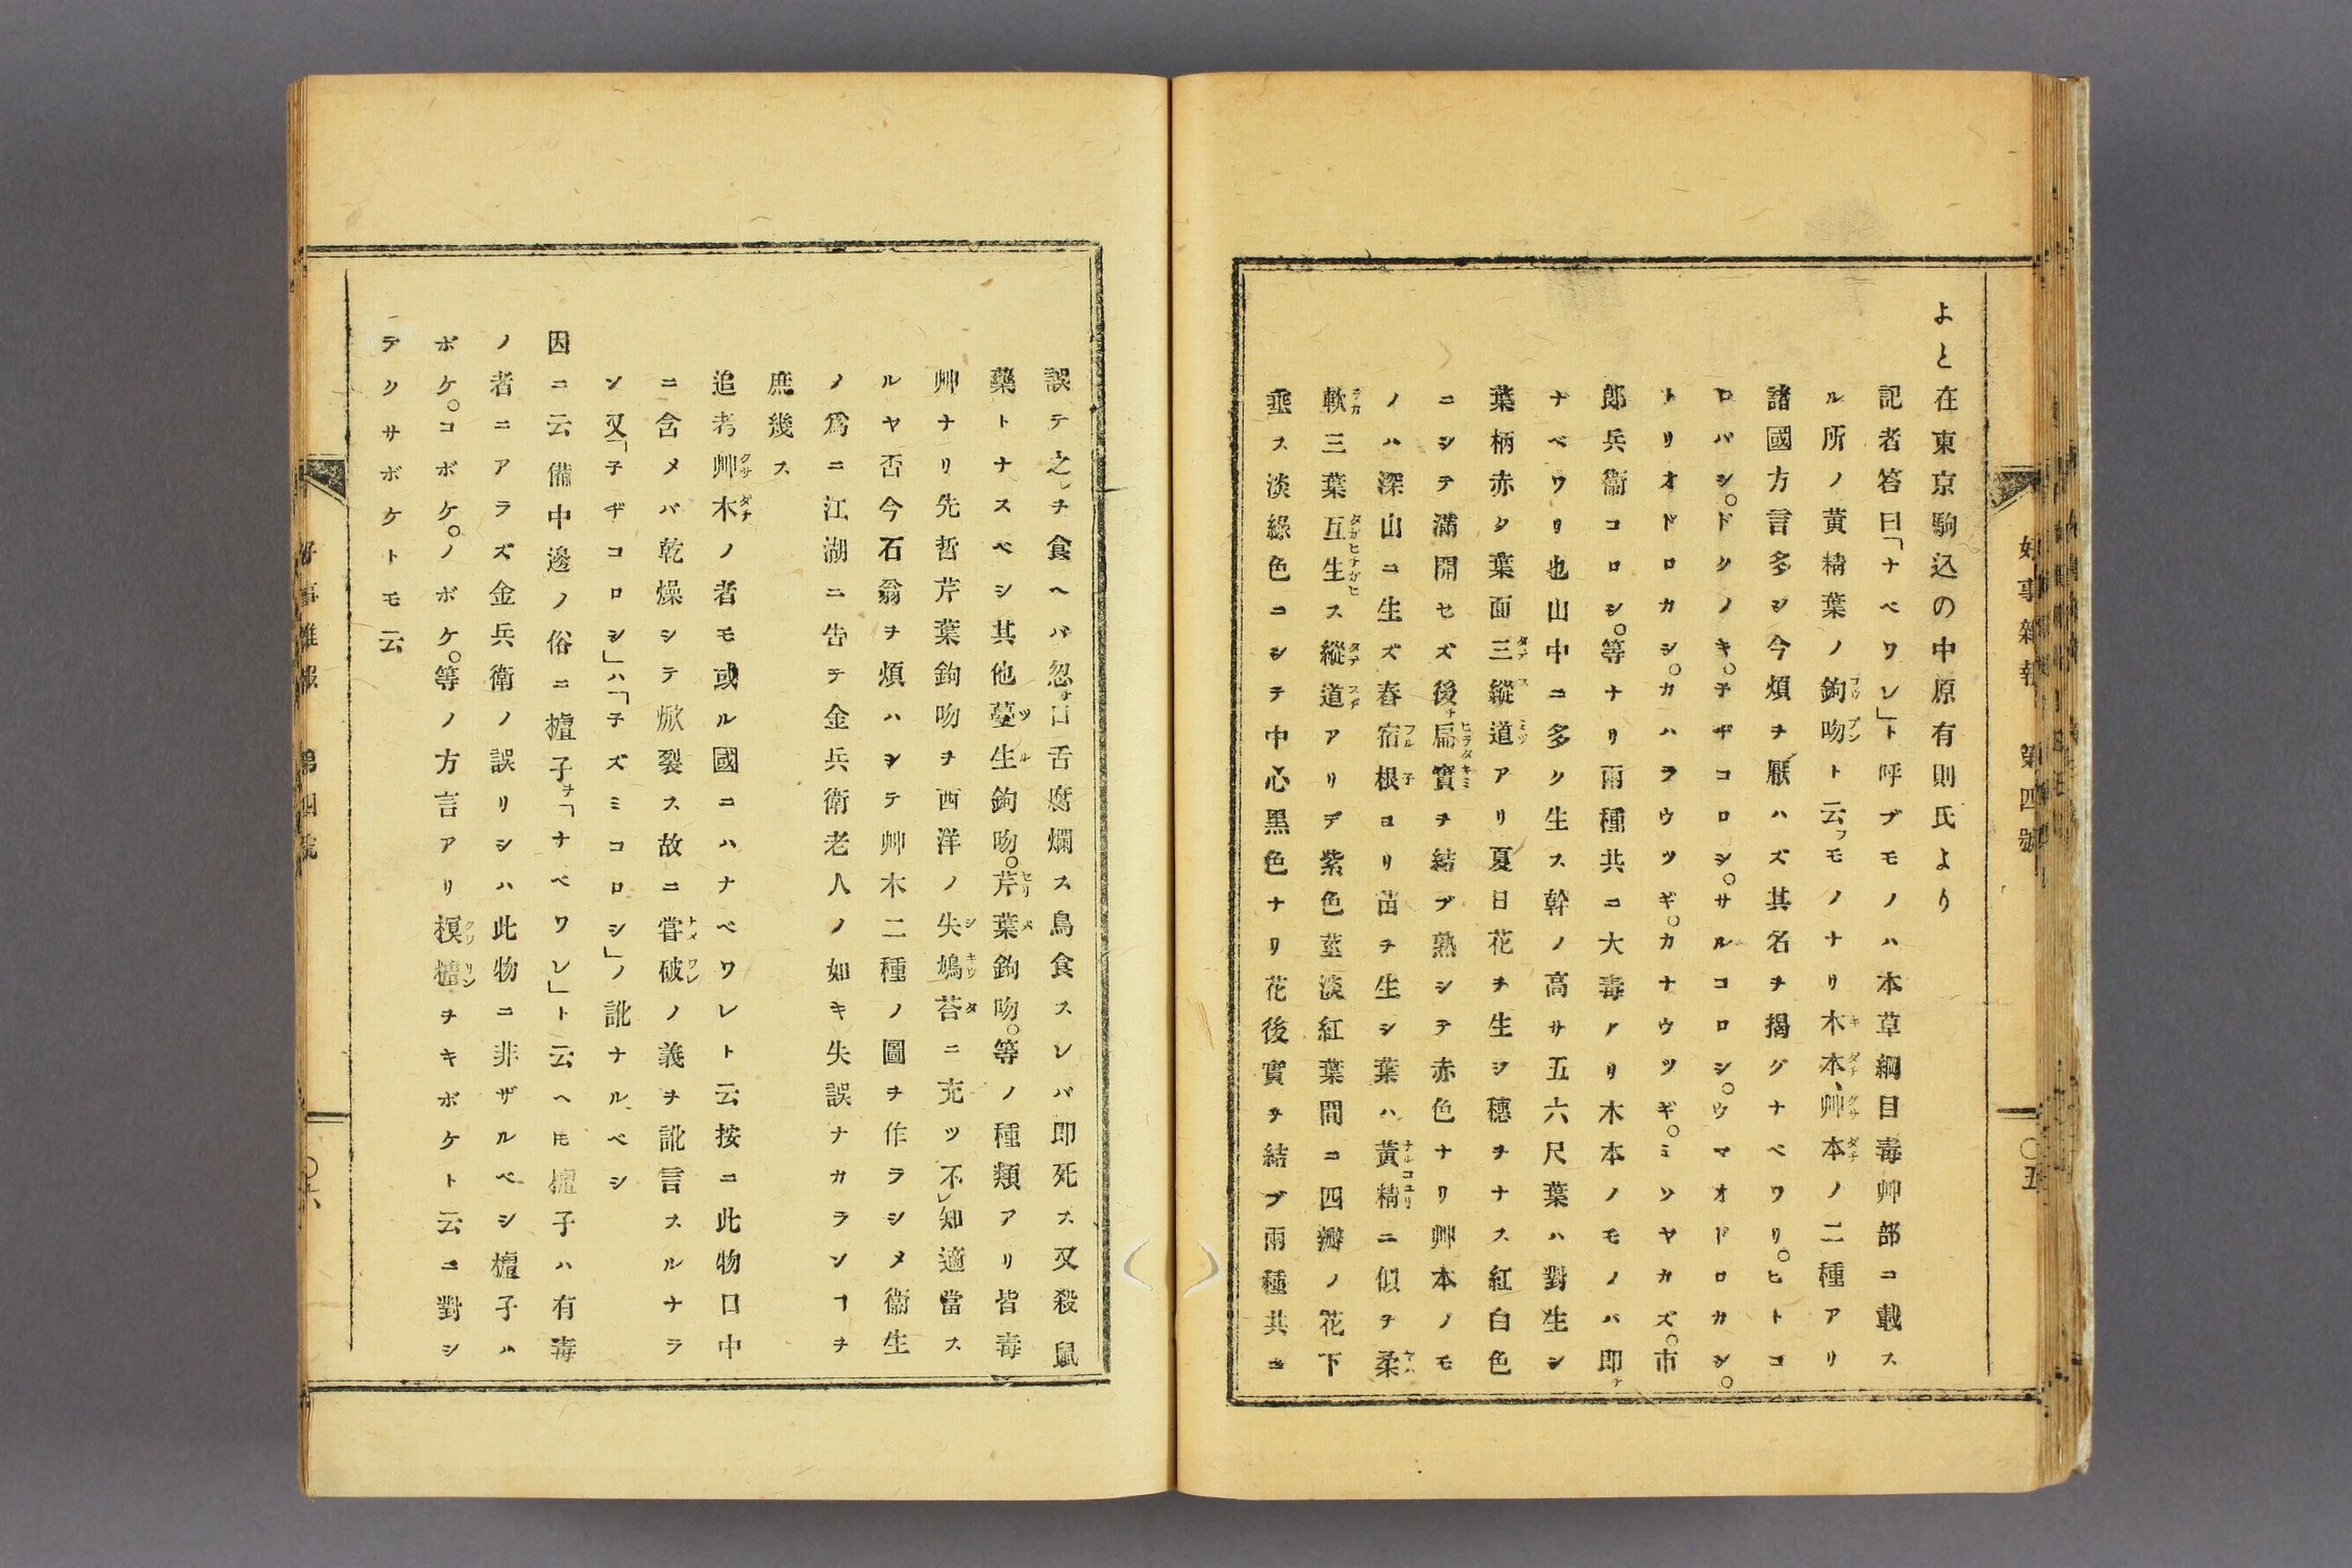 好事雜報　第四號
〇五
よと在東京駒込の中原有則氏より
記者答曰「ナベワレ」ト呼ブモノハ本草綱目毒艸部ニ載ス
ル所ノ黃精葉ノ鉤吻ト云フモノナリ木本、艸本ノ二種アリ
諸國方言多シ今煩ヲ厭ハズ其名ヲ揭グナベワリ。ヒトコ
ロバシ。ドクノキ。子ギコロシ。サルコロシ。ウマオドロカシ。
トリオドロカシ。カハラウツギ。カナウツギ。ミソヤカズ。市
郎兵衞コロシ。等ナリ兩種共ニ大毒アリ木本ノモノハ即チ
ナベワリ也山中ニ多ク生ス幹ノ高サ五六尺葉ハ對生シ
葉柄赤ク葉面三縱道アリ夏日花ヲ生ジ穗ヲナス紅白色
ニシテ滿開セズ後チ扁實ヲ結ブ熟シテ赤色ナリ艸本ノモ
ノハ深山ニ生ズ春宿根ヨリ苗ヲ生シ葉ハ黃精ニ似テ柔
軟三葉互生ス縱道アリテ紫色莖淡紅葉間ニ四瓣ノ花下
垂ス淡綠色ニシテ中心黑色ナリ花後實ヲ結ブ兩種共ニ
誤テ之レヲ食ヘバ忽チ口舌腐爛ス鳥食スレバ即死ス又殺鼠
藥トナスベシ其他蔓生鉤吻。芹葉鉤吻。等ノ種類アリ皆毒
艸ナリ先哲芹葉鉤吻ヲ西洋ノ失鳩荅ニ充ツ不レ知適當ス
ルヤ否今石翁ヲ煩ハシテ艸木二種ノ圖ヲ作ラシメ衞生
ノ爲ニ江湖ニ告テ金兵衛老人ノ如キ失誤ナカランヿヲ
庶幾ス
追考艸木ノ者モ或ル國ニハナベワレト云按ニ此物口中
ニ含メバ乾燥シテ焮裂ス故ニ嘗破ノ義ヲ訛言スルナラ
ン又「子ギコロシ」ハ「子ズミコロシ」ノ訛ナルベシ
因ニ云備中邊ノ俗ニ樝子ヲ「ナベワレ」ト云ヘ𪜈樝子ハ有毒
ノ者ニアラズ金兵衛ノ誤リシハ此物ニ非ザルベシ樝子ハ
ボケ。コボケ。ノボケ。等ノ方言アリ榠樝ヲキボケト云ニ對シ
テクサボケトモ云
好事雜報　第四號
〇六